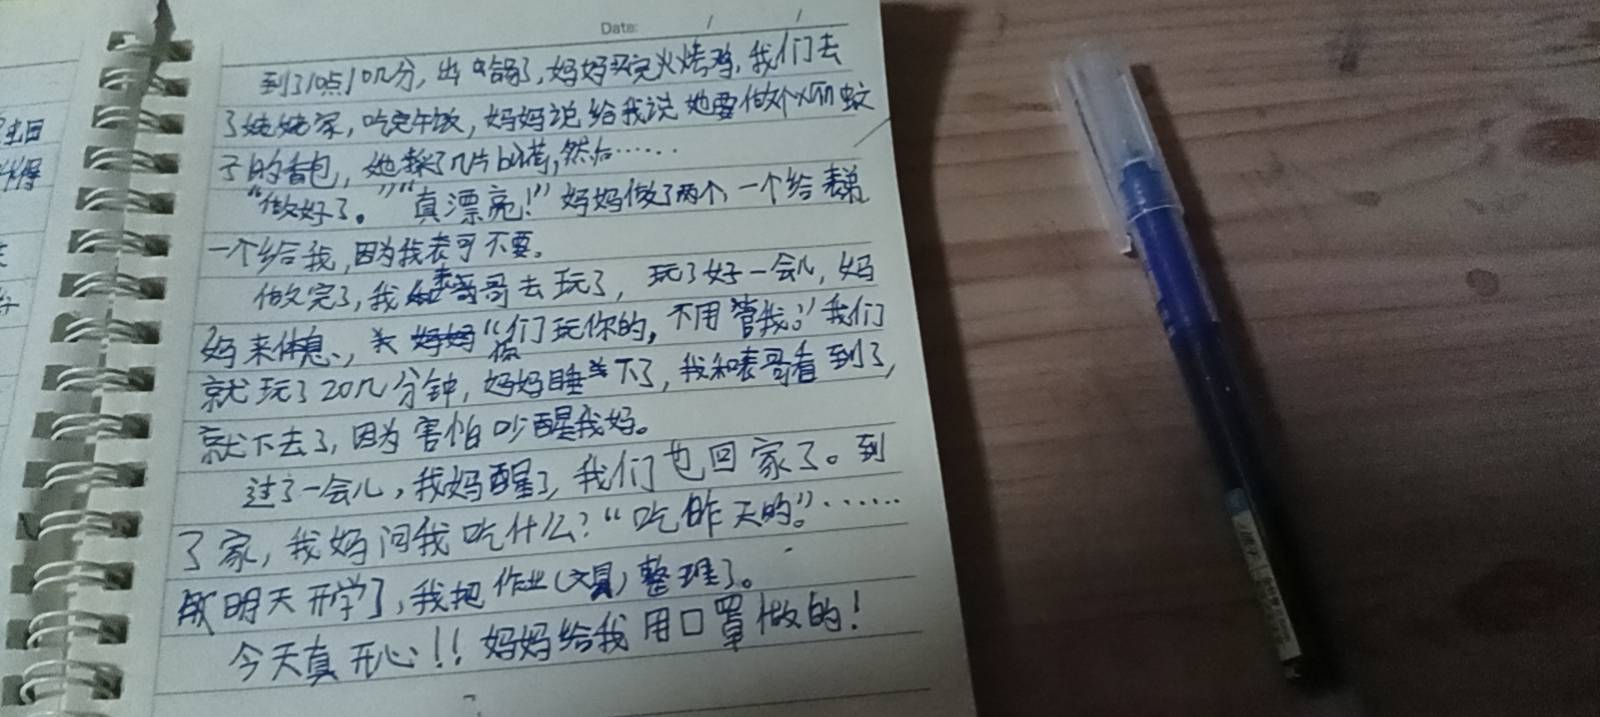 Date: / /
到了10点10几分,出哈了,妈妈买完火烤鸡,我们去
了姥姥家,吃完午饭,妈妈说给我说她要做个 蚊
子的香包,她 了几片bò荷,然后……
“做好了。”“真漂亮!”妈妈做了两个,一个给表弟
一个给我,因为我表可不要。
做完了,我 表哥哥去玩了,玩了好一会儿,妈
妈来休息、,“你们玩你的,不用管我。”我们
就玩了20几分钟,妈妈睡 下了,我和表哥看到了,
就下去了,因为害怕吵醒我妈。
过了一会儿,我妈醒了,我们也回家了。到
了家,我妈问我吃什么?“吃昨天的。”……
明天开学了,我把作业(文具)整理了。
今天真开心!!妈妈给我用口罩做的!